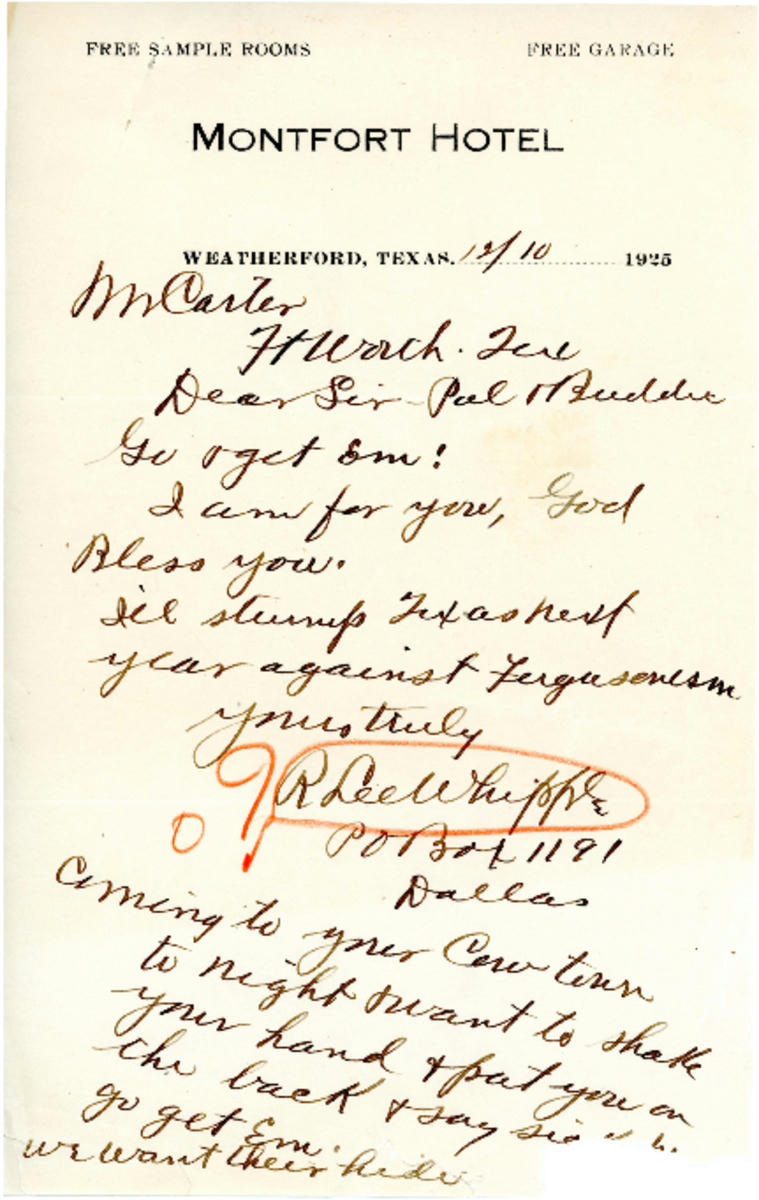 FREE SAMPLE ROOMS FREE GARAGE
MONTFORT HOTEL
WEATHERFORD, TEXAS. 12/10 1925
Mr Carter
Ft Worth. Tex
Dear Sir - Pal & Buddie
Go & get Em!
I am for you, God
Bless you.
I'll stump Texas next
year against Fergusonism
yours truly
R Lee Whipple
PO Box 1191
Dallas
Coming to your Cow town
to night & want to shake
your hand & pat you on
the back & say
go get Em.
we want their hide